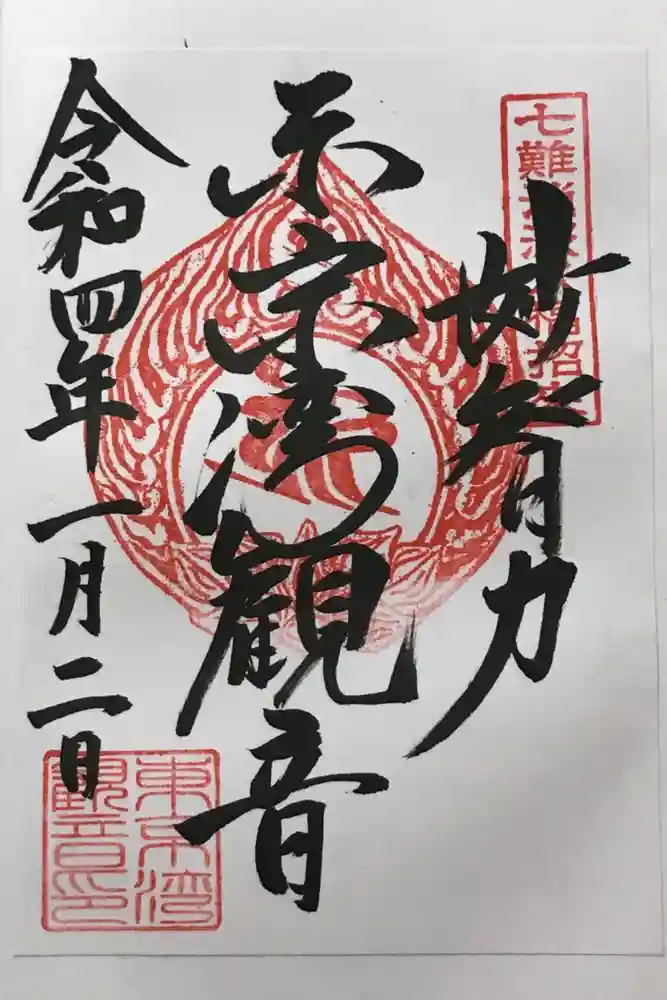 七難 福招
妙智力
東京湾観音
令和四年一月二日
東京湾
観音印